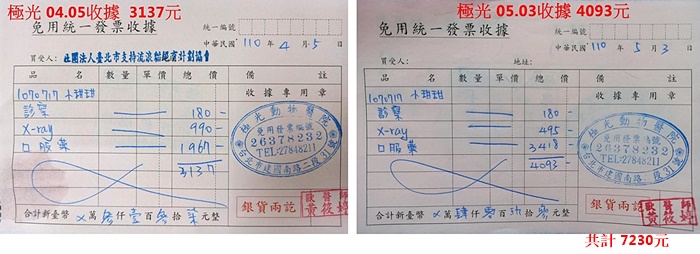 極光 04.05收據 3137元
免用統一發票收據
統一編號
中華民國 110 年 4 月 5 日
買受人: 社團法人臺北市支持流浪貓絕育計劃協會
品名 數量 單價 總價 備註
1070717 小甜甜 收據專用章
診察 180-
X-ray 990-
口服藥 1967-
3137
極光動物醫院
免用發票編號
26378232
TEL:27848211
台北市建國南路二段31號
合計新臺幣 X 萬 參 仟 壹 百 參 拾 柒 元整
銀貨兩訖
歐醫師
黃筱婷
極光 05.03收據 4093元
免用統一發票收據
統一編號
中華民國 110 年 5 月 3 日
買受人: 地址:
品名 數量 單價 總價 備註
1070717 小甜甜 收據專用章
診察 180-
X-ray 495-
口服藥 3418-
4093-
極光動物醫院
免用發票編號
26378232
TEL:27848211
台北市建國南路二段31號
合計新臺幣 X 萬 肆 仟 零 百 玖 拾 參 元整
銀貨兩訖
歐醫師
黃筱婷
共計 7230元